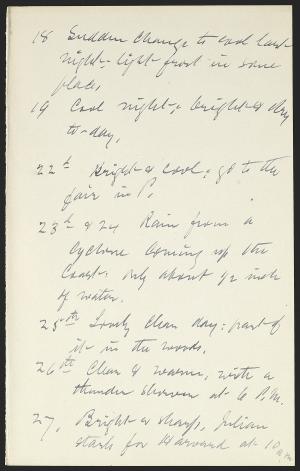 18 Sudden change to cool last
night - light frost in some
places,
19 Cool night, & bright & dry
to-day,
22d Bright & cool; go to the
fair in P.
23d & 24 Rain from a
Cyclone coming up the
Coast: only about 1/2 inch
of water.
25th Lovely clear day: part of
it in the woods,
26th Clear & warm, with a
thunder shower at 6 P.M.
27, Bright & sharp, Julian
starts for Harvard at 10 a.m.